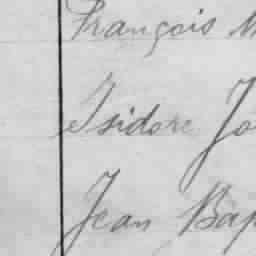 François
Isidore Jo
Jean Bap